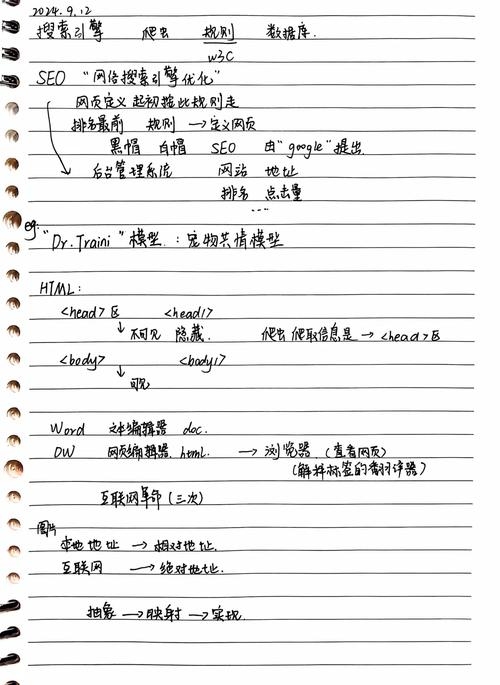 2024.9.12
搜索引擎 爬虫 规则 数据库.
W3C
SEO "网络搜索引擎优化"
网页定义 起初按此规则走
排名最前 规则 → 定义网页
黑帽 白帽 SEO 由"google"提出
后台管理系统 网站 地址
排名 点击量
...
eg: "Dr.Traini"模型.: 宠物共情模型
HTML:
<head>区 <head/>
↓ 不可见 隐藏. 爬虫 爬取信息是 → <head>区
<body> <body/>
↓ 可见
Word 文本编辑器 doc.
DW 网页编辑器. html. → 浏览器. (查看网页)
(解释标签的翻译器)
互联网革命 (三次)
图片
本地地址 → 相对地址.
互联网 → 绝对地址.
抽象 → 映射 → 实现.